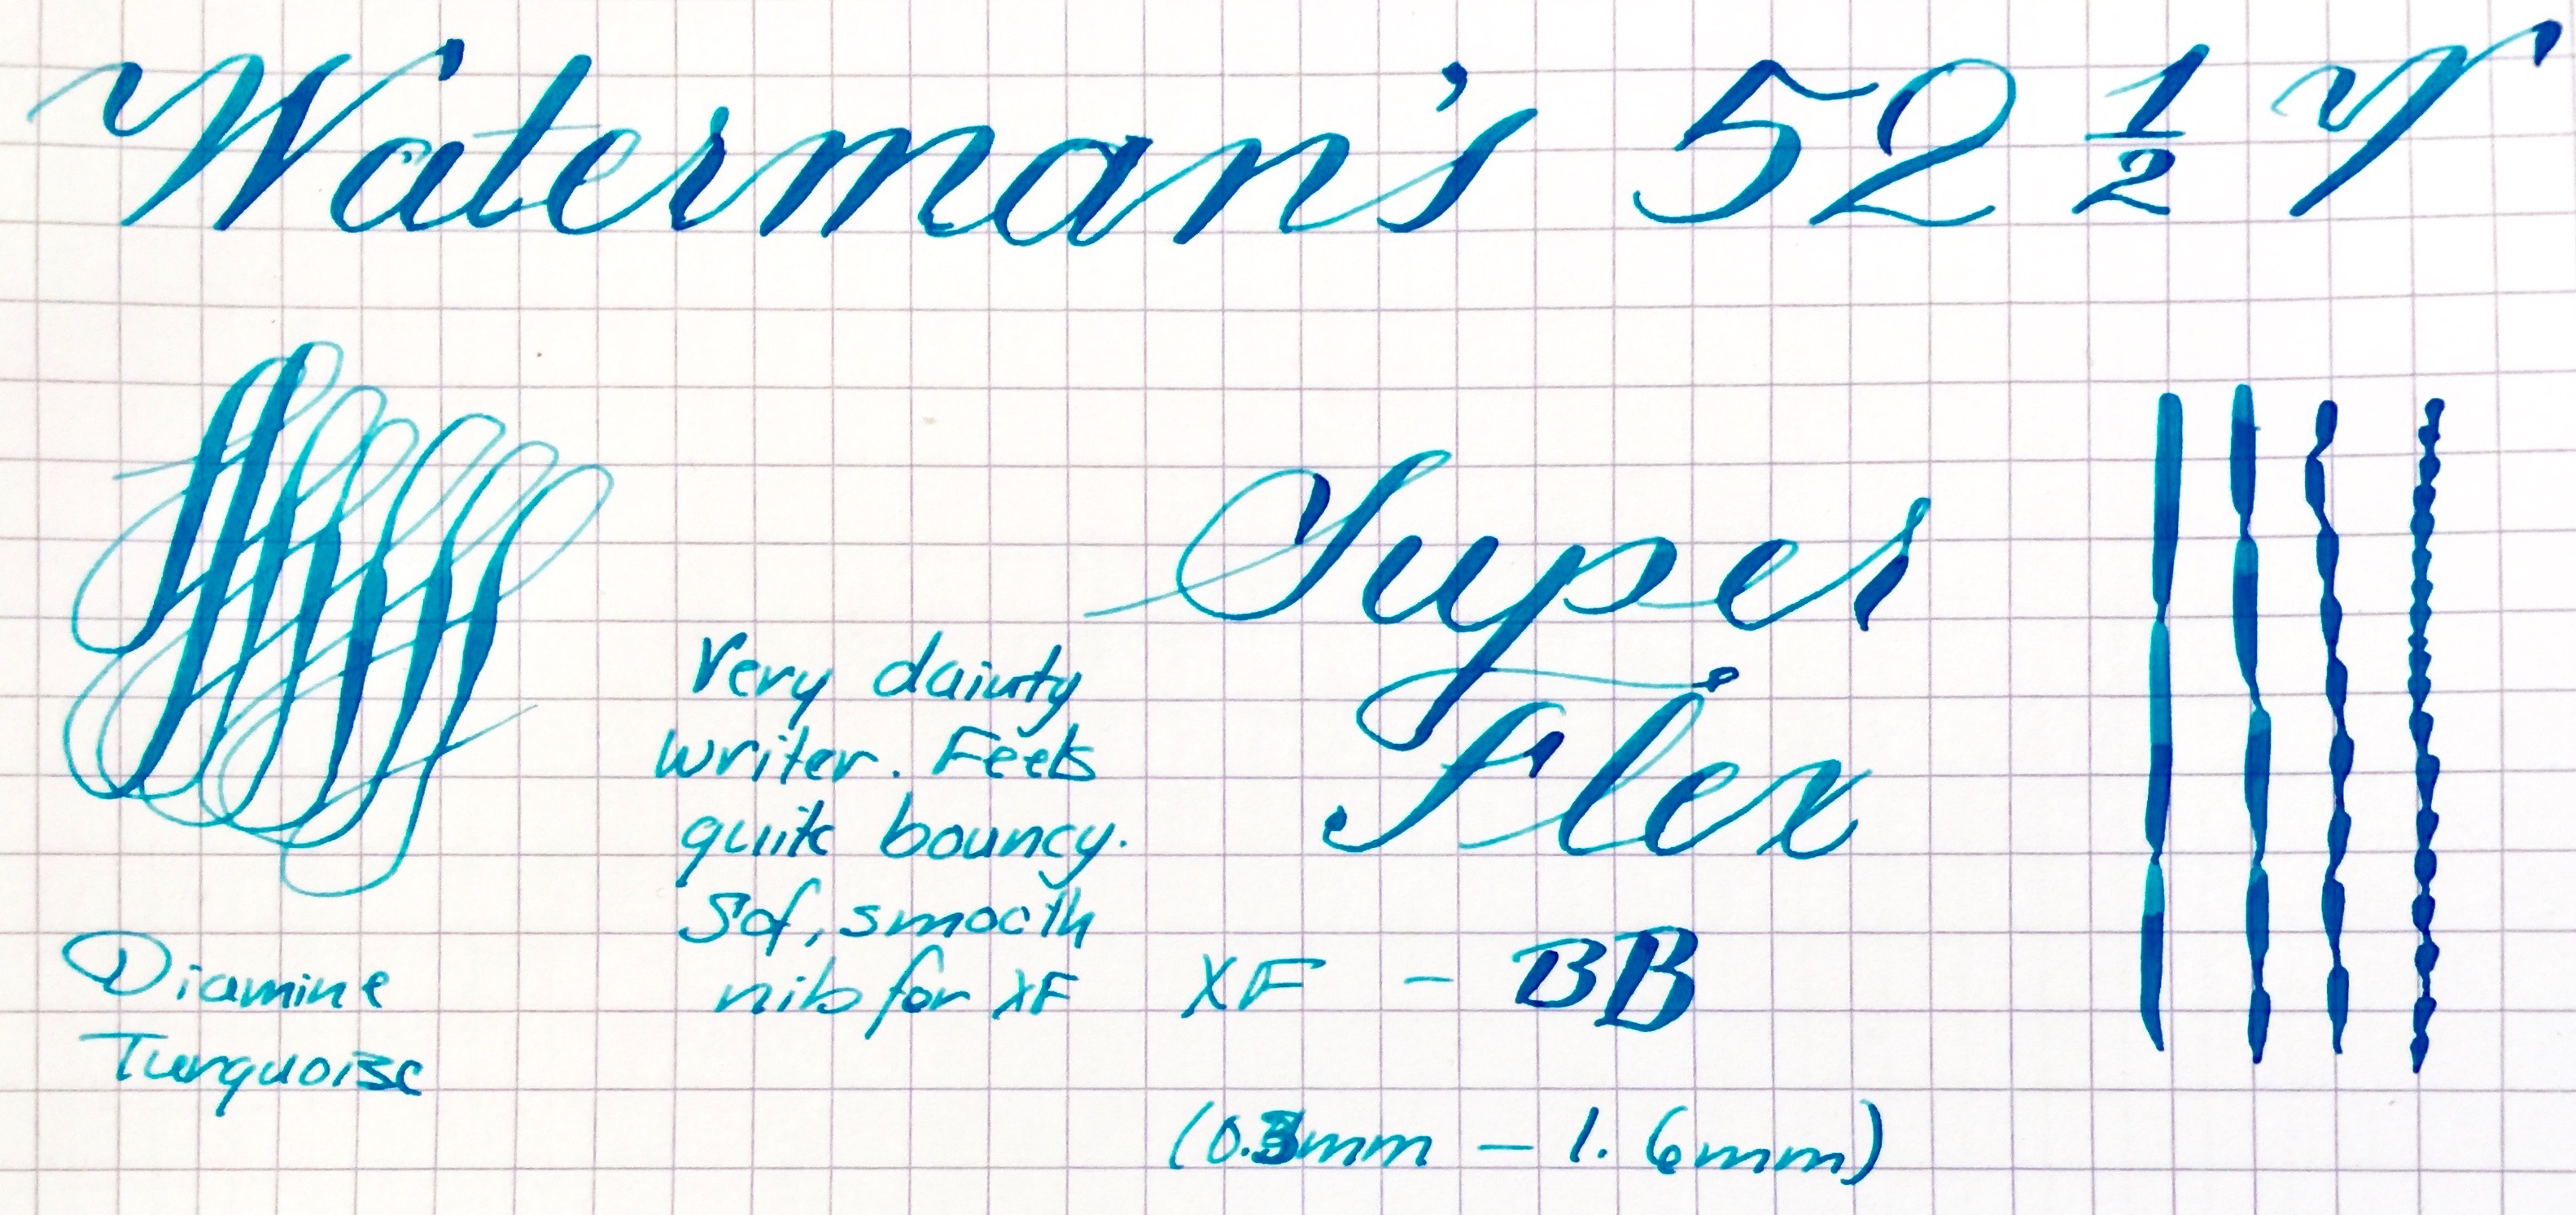 Waterman's 52 ½ V
Super
Flex
Very dainty
writer. Feels
quite bouncy.
Soft, smooth
nib for XF
XF - BB
(0.3mm - 1.6mm)
Diamine
Turquoise